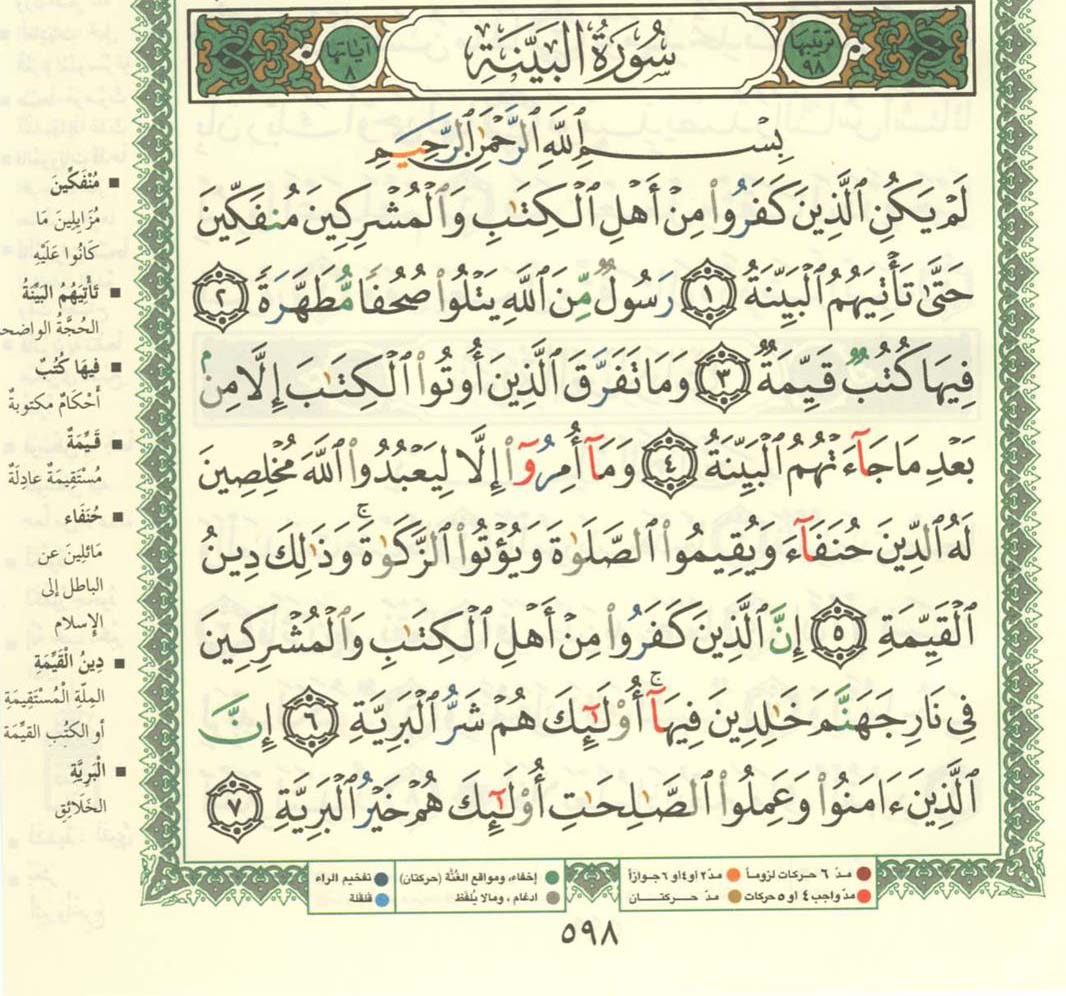 ترتيبها ٩٨
سُورَةُ البَيِّنَةِ
آياتها ٨
بِسْمِ ٱللَّهِ ٱلرَّحْمَٰنِ ٱلرَّحِيمِ
لَمْ يَكُنِ ٱلَّذِينَ كَفَرُوا۟ مِنْ أَهْلِ ٱلْكِتَٰبِ وَٱلْمُشْرِكِينَ مُنفَكِّينَ
حَتَّىٰ تَأْتِيَهُمُ ٱلْبَيِّنَةُ ١ رَسُولٌ مِّنَ ٱللَّهِ يَتْلُوا۟ صُحُفًا مُّطَهَّرَةً ٢
فِيهَا كُتُبٌ قَيِّمَةٌ ٣ وَمَا تَفَرَّقَ ٱلَّذِينَ أُوتُوا۟ ٱلْكِتَٰبَ إِلَّا مِنۢ
بَعْدِ مَا جَآءَتْهُمُ ٱلْبَيِّنَةُ ٤ وَمَآ أُمِرُوٓا۟ إِلَّا لِيَعْبُدُوا۟ ٱللَّهَ مُخْلِصِينَ
لَهُ ٱلدِّينَ حُنَفَآءَ وَيُقِيمُوا۟ ٱلصَّلَوٰةَ وَيُؤْتُوا۟ ٱلزَّكَوٰةَ ۚ وَذَٰلِكَ دِينُ
ٱلْقَيِّمَةِ ٥ إِنَّ ٱلَّذِينَ كَفَرُوا۟ مِنْ أَهْلِ ٱلْكِتَٰبِ وَٱلْمُشْرِكِينَ
فِى نَارِ جَهَنَّمَ خَٰلِدِينَ فِيهَآ ۚ أُو۟لَٰٓئِكَ هُمْ شَرُّ ٱلْبَرِيَّةِ ٦ إِنَّ
ٱلَّذِينَ ءَامَنُوا۟ وَعَمِلُوا۟ ٱلصَّٰلِحَٰتِ أُو۟لَٰٓئِكَ هُمْ خَيْرُ ٱلْبَرِيَّةِ ٧
■ مُنْفَكِّينَ
مُزَايِلِينَ مَا
كَانُوا عَلَيْهِ
■ تَأْتِيَهُمُ البَيِّنَةُ
الحُجَّةُ الواضحـ
■ فِيهَا كُتُبٌ
أَحْكَامٌ مكتوبةٌ
■ قَيِّمَةٌ
مُسْتَقِيمَةٌ عادِلَةٌ
■ حُنَفَاءَ
مَائِلِينَ عن
الباطل إلى
الإسلام
■ دِينُ الْقَيِّمَةِ
المِلّةِ الْمُسْتَقِيمَةِ
أو الكتُبِ القيِّمَة
■ الْبَرِيَّةِ
الخَلَائِقِ
● مدّ ٦ حركات لزوماً ● مدّ ٢ او٤ او ٦ جوازاً
● مدّ واجب ٤ او ٥ حركات ● مدّ حركتـــان
● إخفاء، ومواقع الغُنَّة (حركتان) ● تفخيم الراء
● ادغام ، ومالا يُلفَظ ● قلقلة
٥٩٨